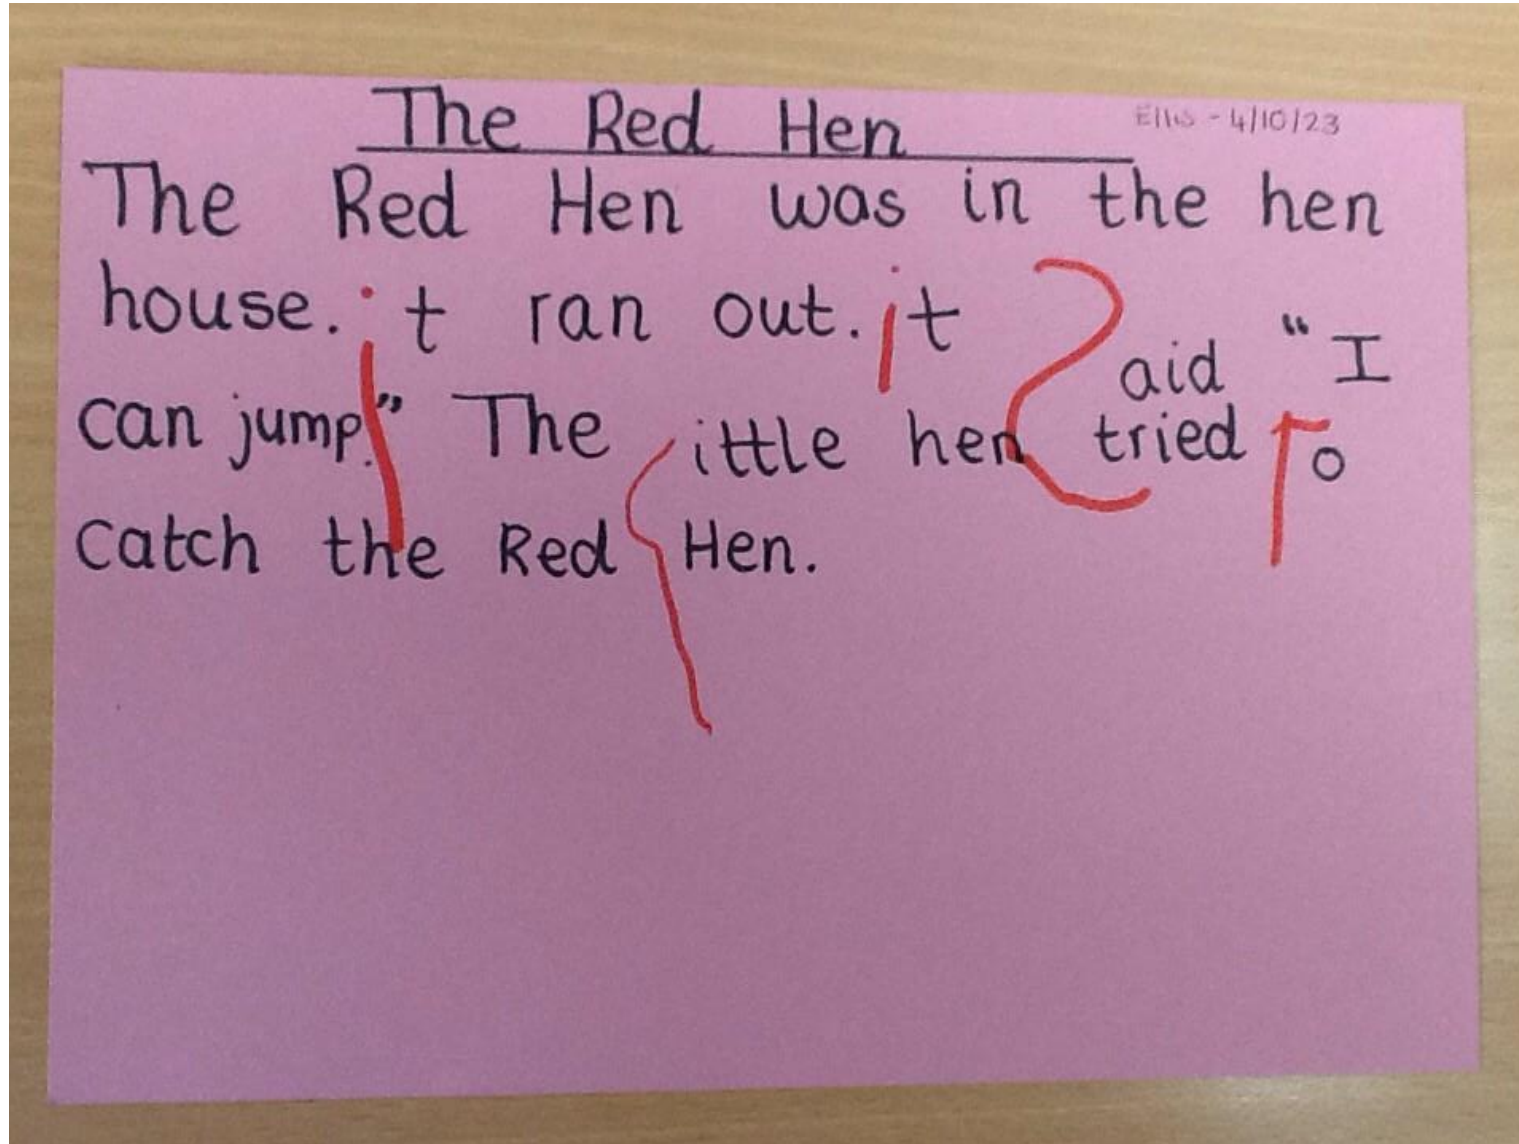 The Red Hen
Ellis - 4/10/23
The Red Hen was in the hen
house. it ran out. it said "I
can jump." The little hen tried To
catch the Red Hen.